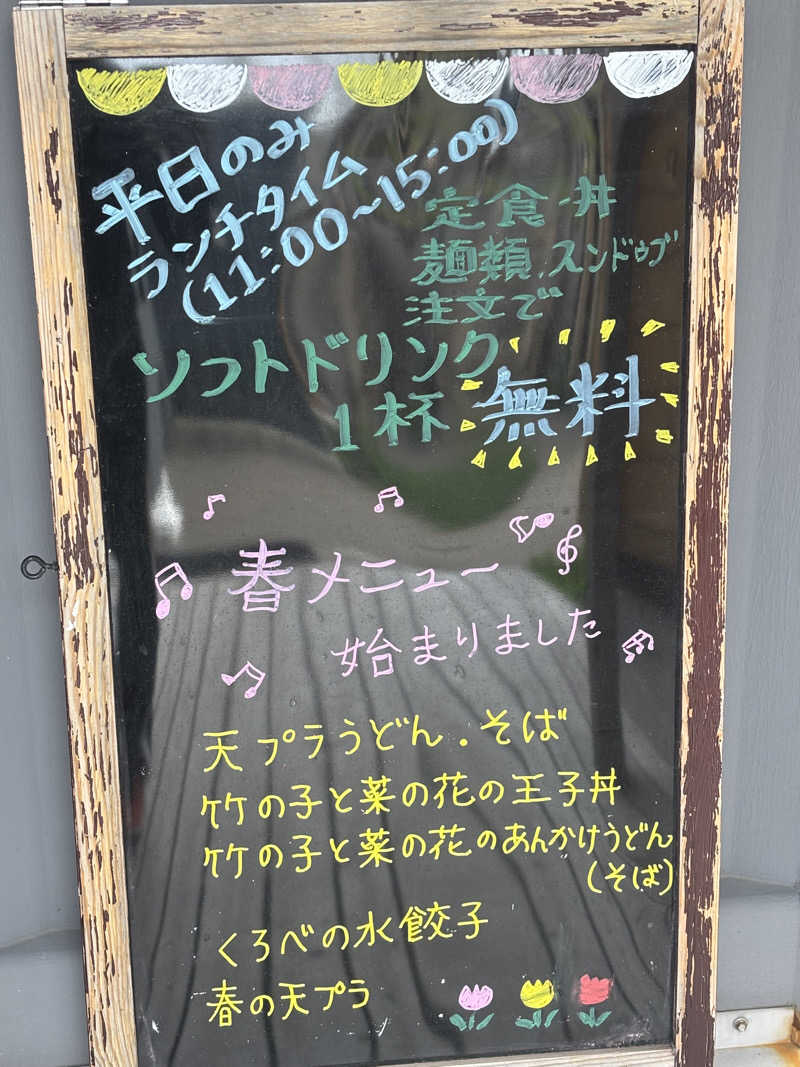 平日のみ
ランチタイム
(11:00~15:00)
定食・丼
麺類、スンドゥブ
注文で
ソフトドリンク
1杯 無料
春メニュー
始まりました
天プラうどん・そば
竹の子と菜の花の王子丼
竹の子と菜の花のあんかけうどん
(そば)
くろべの水餃子
春の天プラ